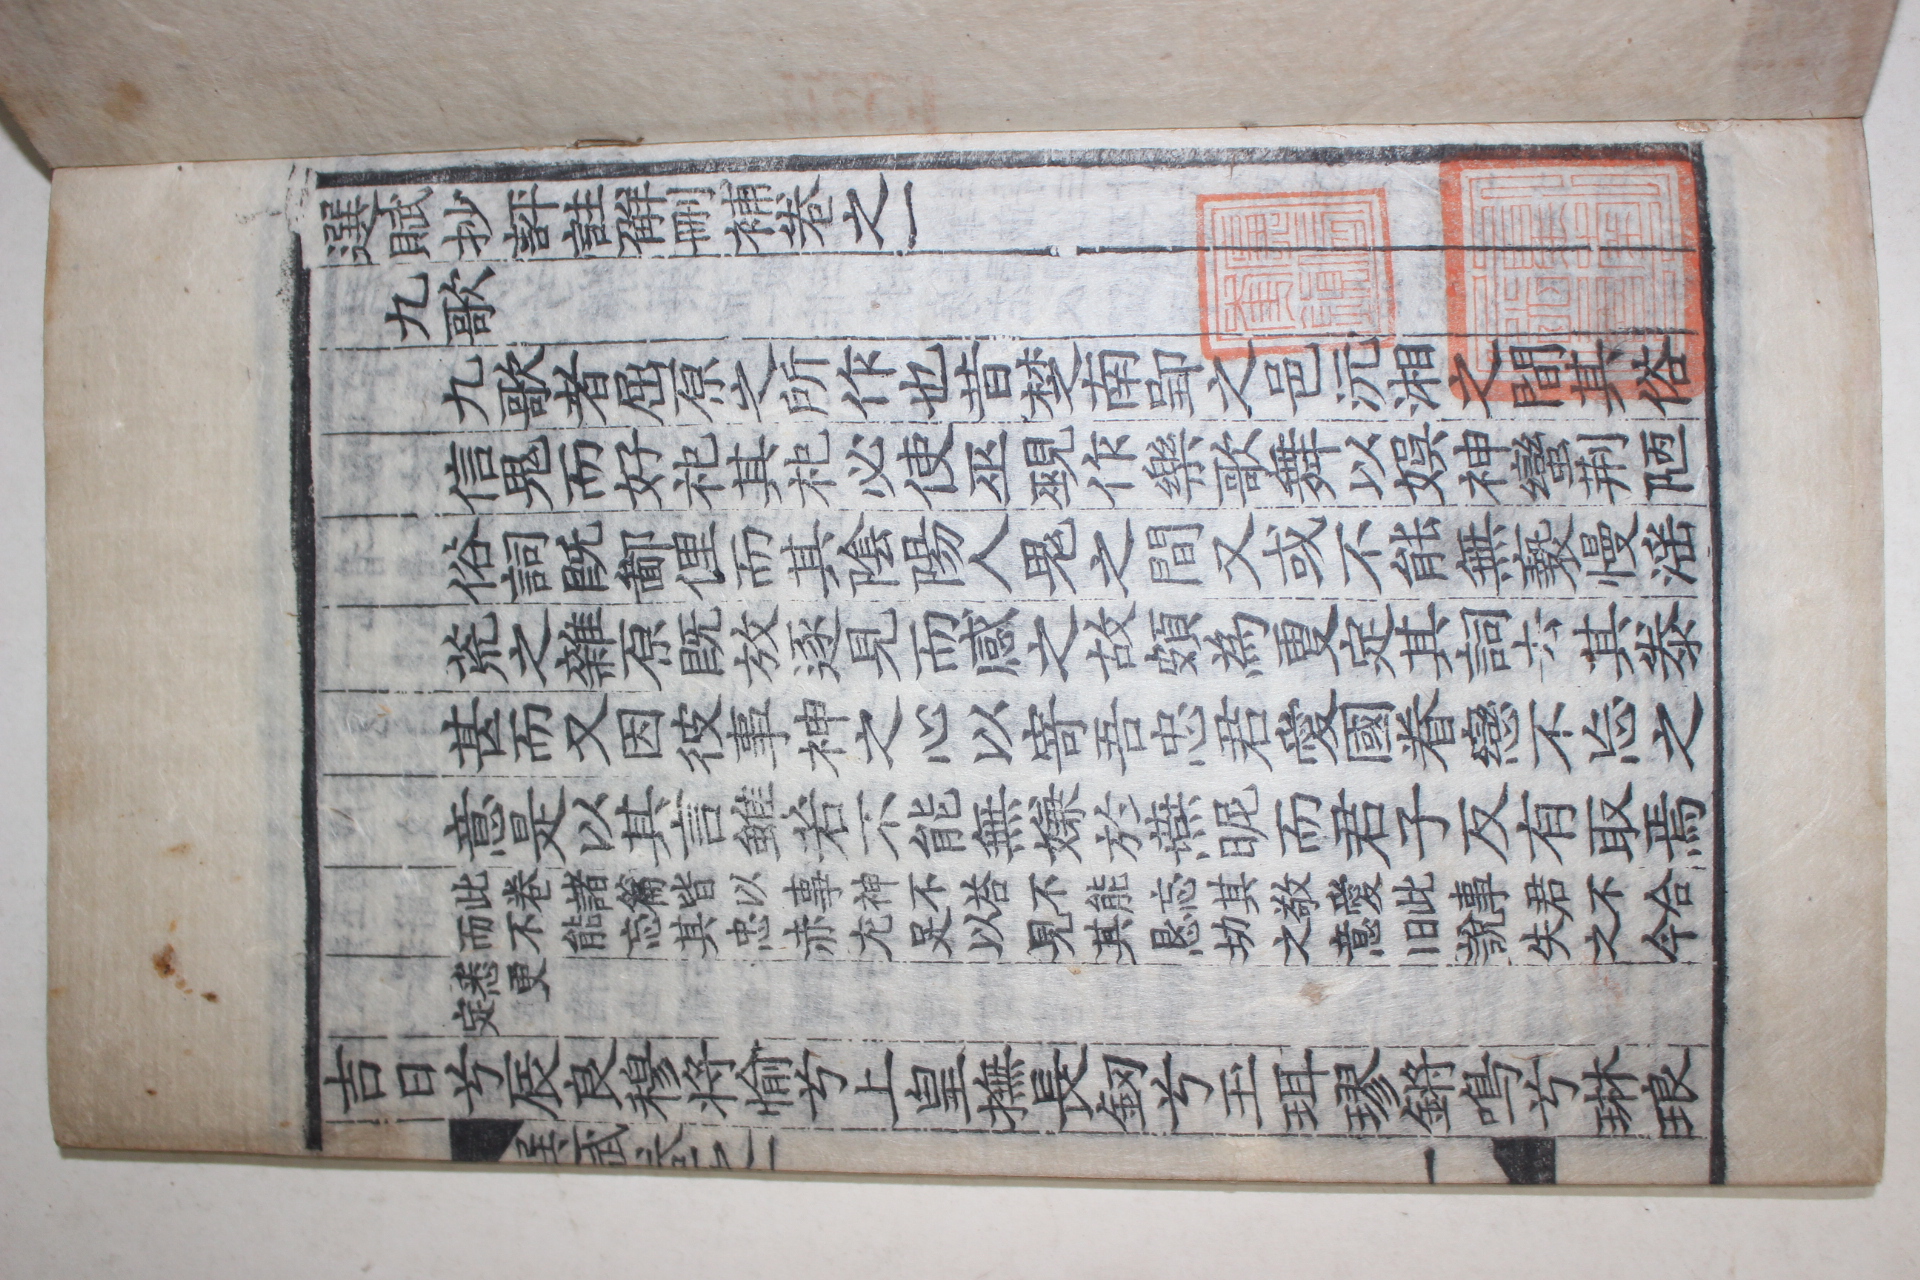 選賦抄評註解刪補卷之一
九歌
九歌者屈原之所作也昔楚南郢之邑沅湘之間其俗
信鬼而好祀其祀必使巫覡作樂歌舞以娛神蠻荊陋
俗詞既鄙俚而其陰陽人鬼之間又或不能無褻慢淫
荒之雜原既放逐見而感之故頗為更定其詞去其泰
甚而又因彼事神之心以寄吾忠君愛國眷戀不忘之
意是以其言雖若不能無嫌於燕昵而君子反有取焉
此卷諸篇皆以事神不答不能忘其敬愛比事君不合
而不能忘其忠赤尤足以見其懇切之意旧說失之今
悉更
定
吉日兮辰良穆將愉兮上皇撫長釼兮玉珥璆鏘鳴兮琳琅
選賦卷之一
一